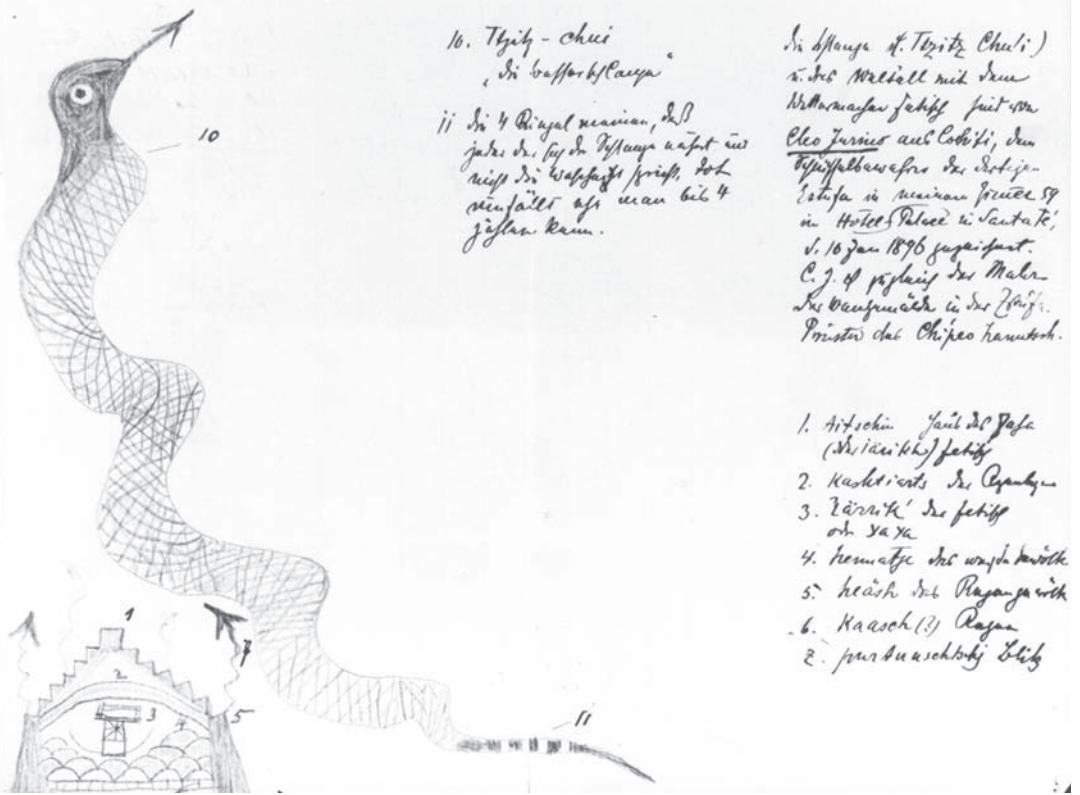 10
10. Tzitz-chui
"die Wasserschlange"
11 die 4 Ringel meinen, daß
jeder der sich der Schlange nähert und
nicht die Wahrheit spricht, tot
umfällt ehe man bis 4
zählen kann.
die Schlange (d. Tzitz Chu'i)
u. das Weltall mit dem
Wettermacher Fetisch sind von
Cleo Jurino aus Cochiti, dem
der dortigen
Estufa in meinem Zimmer 59
im Hotel Palace in Santa Fé,
d. 10 Jan 1896 gezeichnet.
C. J. ist zugleich der Maler
der Wandgemälde in der
Priester des Chipeo
1. Aitschin Haus des Yaya
Fetisch
2. Kashtiarts der Regenbogen
3. Yärriké der Fetisch
oder Yaya
4. das weiße Gewölk
5. das Regengewölk
6. Kaasch (?) Regen
7. Blitz
1
2
3
4
5
7
11